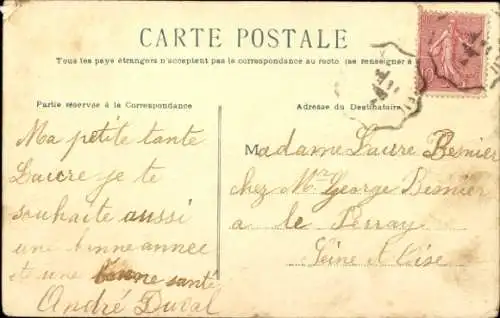 CARTE POSTALE
Tous les pays étrangers n'acceptent pas la correspondance au recto (se renseigner à
Partie réservée à la Correspondance
Adresse du Destinataire
Ma petite tante
Laure je te
souhaite aussi
une bonne année
et une bonne santé
André Duval
Madame Laure Besnier
chez Mr George Besnier
a le Perray
Seine et Oise
10